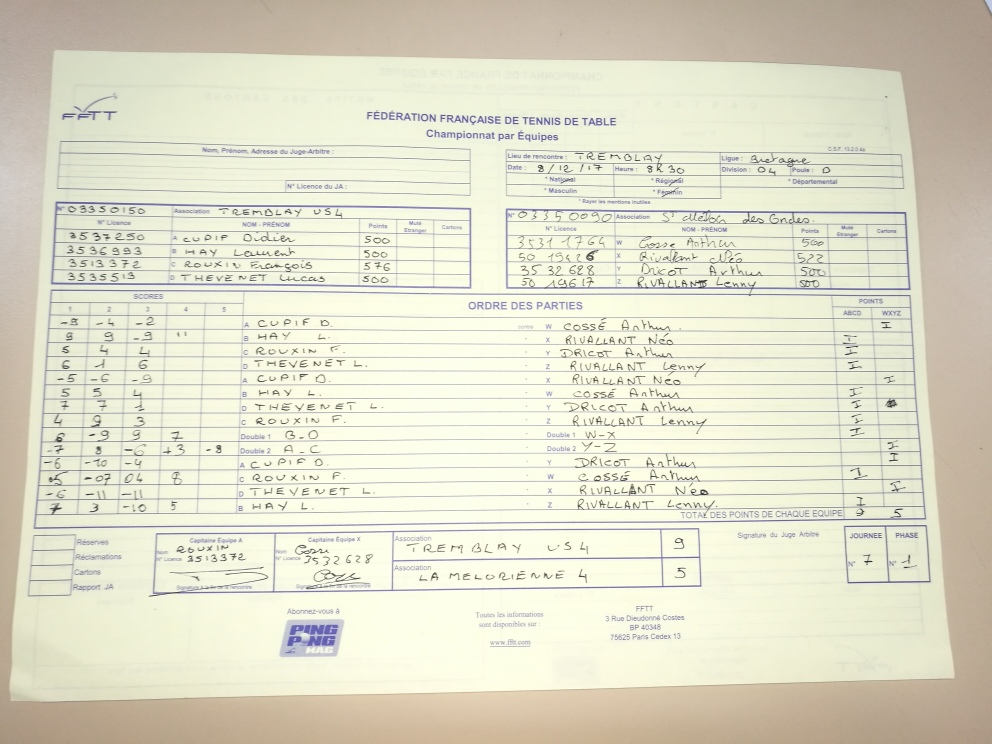 FFTT
FÉDÉRATION FRANÇAISE DE TENNIS DE TABLE
Championnat par Équipes
C.S.F. 13.2.0 Ab
Nom, Prénom, Adresse du Juge-Arbitre :
N° Licence du JA :
Lieu de rencontre : TREMBLAY Ligue : Bretagne
Date : 8/12/17 Heure : 8h30 Division : 04 Poule : D
* National * Régional * Départemental
* Masculin * Féminin
* Rayer les mentions inutiles
N° 03350150 Association TREMBLAY US4
N° Licence NOM - PRÉNOM Points Muté Etranger Cartons
3537250 A CUPIF Didier 500
3536993 B HAY Laurent 500
3513372 C ROUXIN François 576
3535513 D THEVENET Lucas 500
N° 03350090 Association St méloir des Ondes.
N° Licence NOM - PRÉNOM Points Muté Etranger Cartons
3531 1764 W Cosse Arthur 500
50 19426 X Rivallant Néo 522
35 32628 Y Dricot Arthur 500
50 19617 Z RIVALLANT Lenny 500
SCORES ORDRE DES PARTIES POINTS
1 2 3 4 5 ABCD WXYZ
-9 -4 -2 A CUPIF D. contre W COSSÉ Arthur. I
9 9 -9 11 B HAY L. " X RIVALLANT Néo I
5 4 4 C ROUXIN F. " Y DRICOT Arthur I
6 1 6 D THEVENET L. " Z RIVALLANT Lenny I
-5 -6 -9 A CUPIF D. " X RIVALLANT Néo I
5 5 4 B HAY L. " W COSSÉ Arthur I
7 7 1 D THEVENET L. " Y DRICOT Arthur I
4 9 3 C ROUXIN F. " Z RIVALLANT Lenny I
6 -9 9 7 Double 1 B-D " Double 1 W-X I
-7 8 -6 +3 -8 Double 2 A-C " Double 2 Y-Z I
-6 -10 -4 A CUPIF D. " Y DRICOT Arthur I
-5 -07 04 8 C ROUXIN F. " W COSSÉ Arthur I
-6 -11 -11 D THEVENET L. " X RIVALLANT Néo I
7 3 -10 5 B HAY L. " Z RIVALLANT Lenny. I
TOTAL DES POINTS DE CHAQUE EQUIPE 9 5
Réserves
Réclamations
Cartons
Rapport JA
Capitaine Équipe A
Nom ROUXIN
N° Licence 3513372
Signature à la fin de la rencontre
Capitaine Équipe X
Nom Cosse
N° Licence 3532628
Signature à la fin de la rencontre
Association TREMBLAY US4 9
Association LA MELORIENNE 4 5
Signature du Juge Arbitre
JOURNEE PHASE
N° 7 N° 1
Abonnez-vous à
PING PONG MAG
Toutes les informations
sont disponibles sur :
www.fftt.com
FFTT
3 Rue Dieudonné Costes
BP 40348
75625 Paris Cedex 13